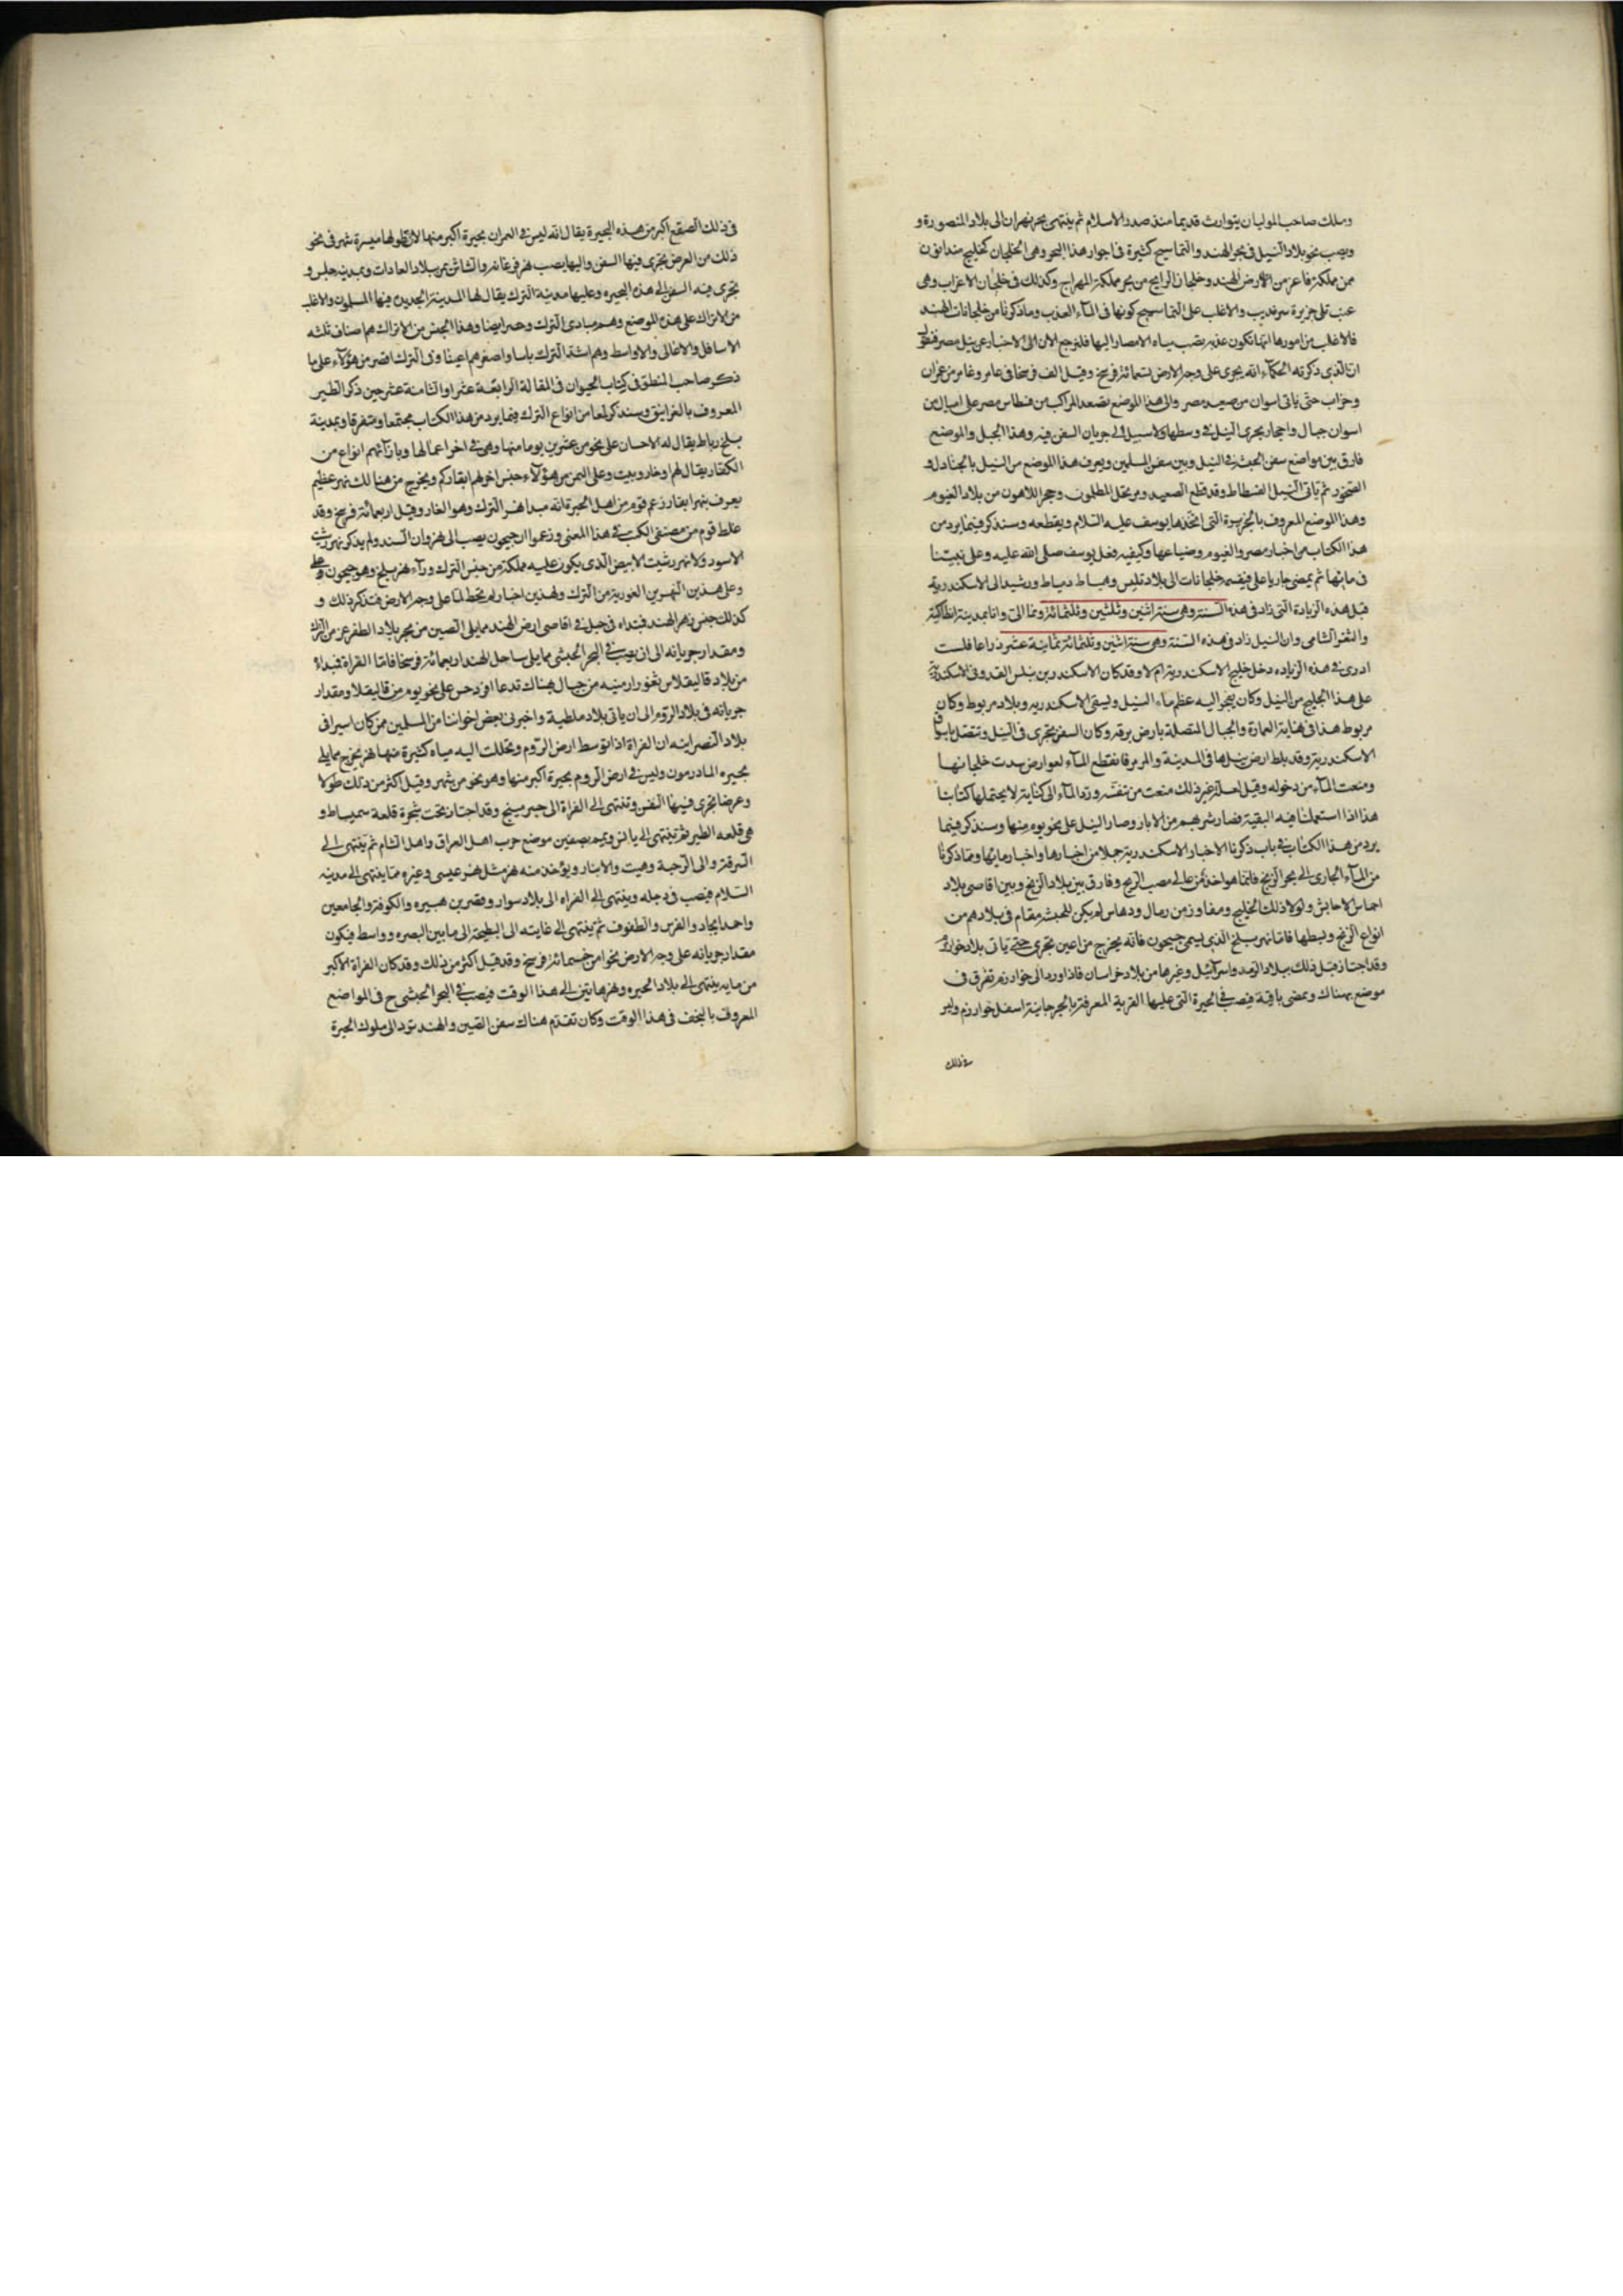 وملك صاحب الموليان يتوارث قديما منذ صدر الاسلام ثم ينتهى بحر نهران الى بلاد المنصورة و
ويصب نحو بلاد النيل فى بحر الهند والتماسيح كثيرة فى اجوار هذا البحر وهى الخلجان كخليج
من مملكة من الارض الهند وخلجان الزابج من بحر مملكة المهراج وكذلك فى خلجان الاعراب وهى
تلى جزيرة سرنديب والاغلب على التماسيح كونها فى المآء العذب وما ذكرنا من خلجانات الهند
فالاغلب من امورها انما تكون عذبه بصب مياه الامصار اليها فلنرجع الان الى الاخبار عن نيل مصر فنقول
ان الذى ذكرته الحكمآء انه يجرى على وجه الارض تسعمائة فرسخ وقيل الف فرسخا فى عامر وغامر من عمران
وخراب حتى ياتى اسوان من صعيد مصر والى هذا الموضع تصعد المراكب من فسطاس مصر على اميال من
اسوان جبال واحجار يجرى النيل فى وسطها ولا سبيل الى جريان السفن فيه وهذا الجبل والموضع
فارق بين مواضع سفن الحبشة فى النيل وبين سفن المسلمين ويعرف هذا الموضع من النيل بالجنادل و
الصخور ثم ياتى النيل الفسطاط وقد قطع الصعيد ومر بحجر اللاهون من بلاد الفيوم
وهذا الموضع المعروف بالجزيرة التى اتخذها يوسف عليه السلام ويقطعه وسنذكر فيما يرد من
هذا الكتاب من اخبار مصر والفيوم وضياعها وكيفيه فعل يوسف صلى الله عليه وعلى نبيّنا
فى مائها ثم يمضى جاريا على فينقسم خلجانات الى بلاد تنيس ودمياط ورشيد الى الاسكندرية
قبل هذه الزيادة التى زاد فى هذه السنة وهى سنة اثنين وثلثين وثلثمائة ونما الىّ وانا بمدينة انطاكية
والثغر الشامى وان النيل زاد فى هذه السنة وهى سنة اثنين وثلثمائة ثمانية عشر ذراعا فلست
ادرى فى هذه الزياده دخل خليج الاسكندرية ام لا وقد كان الاسكندر بن بنلس القدونى الاسكندرية
على هذا الخليج من النيل وكان ينجر اليه عظم ماء النيل ويسقى الاسكندريه وبلاد مربوط وكان
مربوط هذا فى نهاية العمارة والجبال المتصلة بارض برقه وكان السفن تجرى فى النيل وتتصل باسواق
الاسكندرية وقد بلط ارض نيلها فى المدينة والمرمر فانقطع المآء لعوارض سدت خلجانها
ومنعت المآء من دخوله وقيل لعلة غير ذلك منعت من تنفسّه وردّ المآء الى كناية لا يحتملها كتابنا
هذا اذا استعملنا فيه البقية فصار شربهم من الابار وصار النيل على نحو يوم منها وسنذكر فيما
يرد من هذا الكتاب فى باب ذكرنا الاخبار الاسكندرية جملا من اخبارها واخبار مائها ومما ذكرنا
من المآء الجارى الى بحر الزنج فانما هو اخذ من عالى مصب الزنج وفارق بين بلاد الزنج وبين اقاصى بلاد
اجناس الاحابش ولولا ذلك الخليج ومفاوز من رمال ودهاس لم يكن للحبشة مقام فى بلادهم من
انواع الزنج وبسطها فاما نهر بلخ الذى يسمى جيحون فانه يخرج من اعين تجرى حتى ياتى بلاد خوارزم
وقد اجتاز قبل ذلك ببلاد الترمد واسرآئيل وغيرها من بلاد خراسان فاذا ورد الى خوارزم تفرق فى
موضع هناك ويمضى باقيه فيصب فى البحيرة التى عليها القرية المعرفة بالجرجانية اسفل خوارزم وليس
فى ذلك
فى ذلك الصقع اكبر من هذه البحيرة يقال انه ليس فى العمران بحيرة اكبر منها لان طولها مسيرة شهر فى نحو
ذلك من العرض تجرى فيها السفن واليها يصب نهر فرغانه والشاش يمر ببلاد وبمدينه جلس و
تجرى فيه السفن الى هذه البحيره وعليها مدينة الترك يقال لها المدينة الجديدن فيها المسلمون والاغلب
من الاتراك على هذا الموضع وهم ميادى الترك وحضر ايضا وهذا الجنس من الاتراك هم اصناف ثلثه
الاسافل والاغالى والاواسط وهم اشد الترك باسا واصغرهم اعينا وفى الترك اقصر من هؤلآء على ما
ذكر صاحب المنطق فى كتاب الحيوان فى المقالة الرابعة عشر او الثامنة عشر حين ذكر الطير
المعروف بالغرانيق وسنذكر لمعا من انواع الترك فيما يرد من هذا الكتاب مجتمعا ومتفرقا وبمدينة
بلخ رباط يقال له الاحسان على نحو من عشرين يوما منها وهى فى اخر اعمالها وبازآئهم انواع من
الكفار يقال لهم اوخار وبيت وعلى اليمن من هؤلآء جنس اخر لهم ابقار كم ويخرج من هنالك نهر عظيم
يعرف بنهر ابقار زعم قوم من اهل الخبرة انه مبدا نهر الترك وهو الغار وقيل اربعمائة فرسخ وقد
غلط قوم من مصنفى الكتب فى هذا المعنى وزعموا ان جيحون يصب الى مهران السند ولم يذكر نهر رشت
الاسود ولا نهر رشيت الابيض الذى يكون عليه مملكة من جنس الترك ورآء نهر بلخ وهو جيحون وعلى
وعلى هذين النهرين الغورية من الترك ولهذين اخبار لم تحط لنا على وجه الارض فنذكر ذلك و
كذلك جنس نهر الهند فبتداه فى جبل فى اقاصى ارض الهند مما يلى الصين من نحو بلاد الطغرغز من الترك
ومقدار جريانه الى ان يصب فى البحر الحبشى مما يلى ساحل الهند اربعمائة فرسخا فاما الفراة فبداءُ
من بلاد قاليقلا من ثغور ارمنيه من جبال هناك تدعا افردحس على نحو يوم من قاليقلا ومقدار
جريانه فى بلاد الروم الى ان ياتى بلاد ملطية واخبرنى بعض اخواننا من المسلمين ممن كان اسيرا فى
بلاد النصرانيه ان الفراة اذا توسط ارض الروم وتحللت اليه مياه كثيرة منها نهر يخرج مما يلى
بحيره المادرمون وليس فى ارض الروم بحيرة اكبر منها وهو نحو من شهر وقيل اكثر من ذلك طولا
وعرضا تجرى فيها السفن وتنتهى الى الفراة الى جسر منبج وقد اجتاز تحت شجرة قلعة سميساط و
هى قلعه الطير ثم تنتهى الى بالس ويمر بصفين موضع حرب اهل العراق واهل الشام ثم ينتهى الى
الرقة والى الرحبة وهيت والانبار ويؤخذ منه نهر مثل نهر عيسى وغيره مما ينتهى الى مدينه
السلام فيصب فى دجله وينتهى الى الفراه الى بلاد سوار وقصر بن هبيره والكوفة والجامعين
واحمد ايجاد والفرس والطفوف ثم ينتهى الى غايته الى البطيحة الى ما بين البصره وواسط فيكون
مقدار جريانه على وجه الارض نحوا من خمسمائة فرسخ وقد قيل اكثر من ذلك وقد كان الفراة الاكبر
من مايه ينتهى الى بلاد الحيره ونهرها بين الى هذا الوقت فيصب فى البحر الحبشى ح فى المواضع
المعروف بالنجف فى هذا الوقت وكان تقدم هناك سفن الصين والهند تود الى ملوك الحيرة